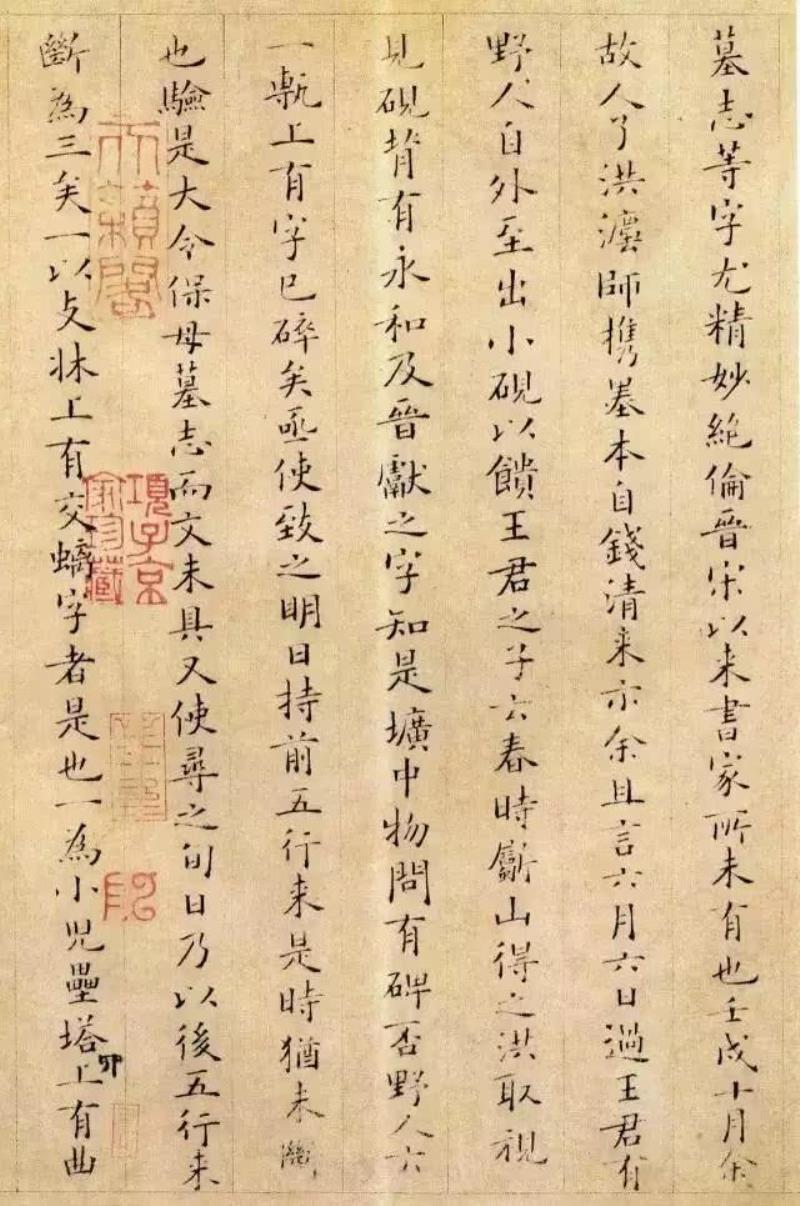 墓志等字尤精妙絶倫晉宋以来書家所未有也壬戌十月余
故人了洪灋師携墨本自錢清来示余且言六月六日過王君有
野人自外至出小硯以饋王君之子云春時斸山得之洪取視
見硯背有永和及晉獻之字知是壙中物問有碑否野人云
一甎上有字已碎矣亟使致之明日持前五行来是時猶未斷
也驗是大令保母墓志而文未具又使尋之旬日乃以後五行来
天籟閣
項子京家珍藏
斷為三矣一以支牀上有交螭字者是也一為小兒壘塔上有曲